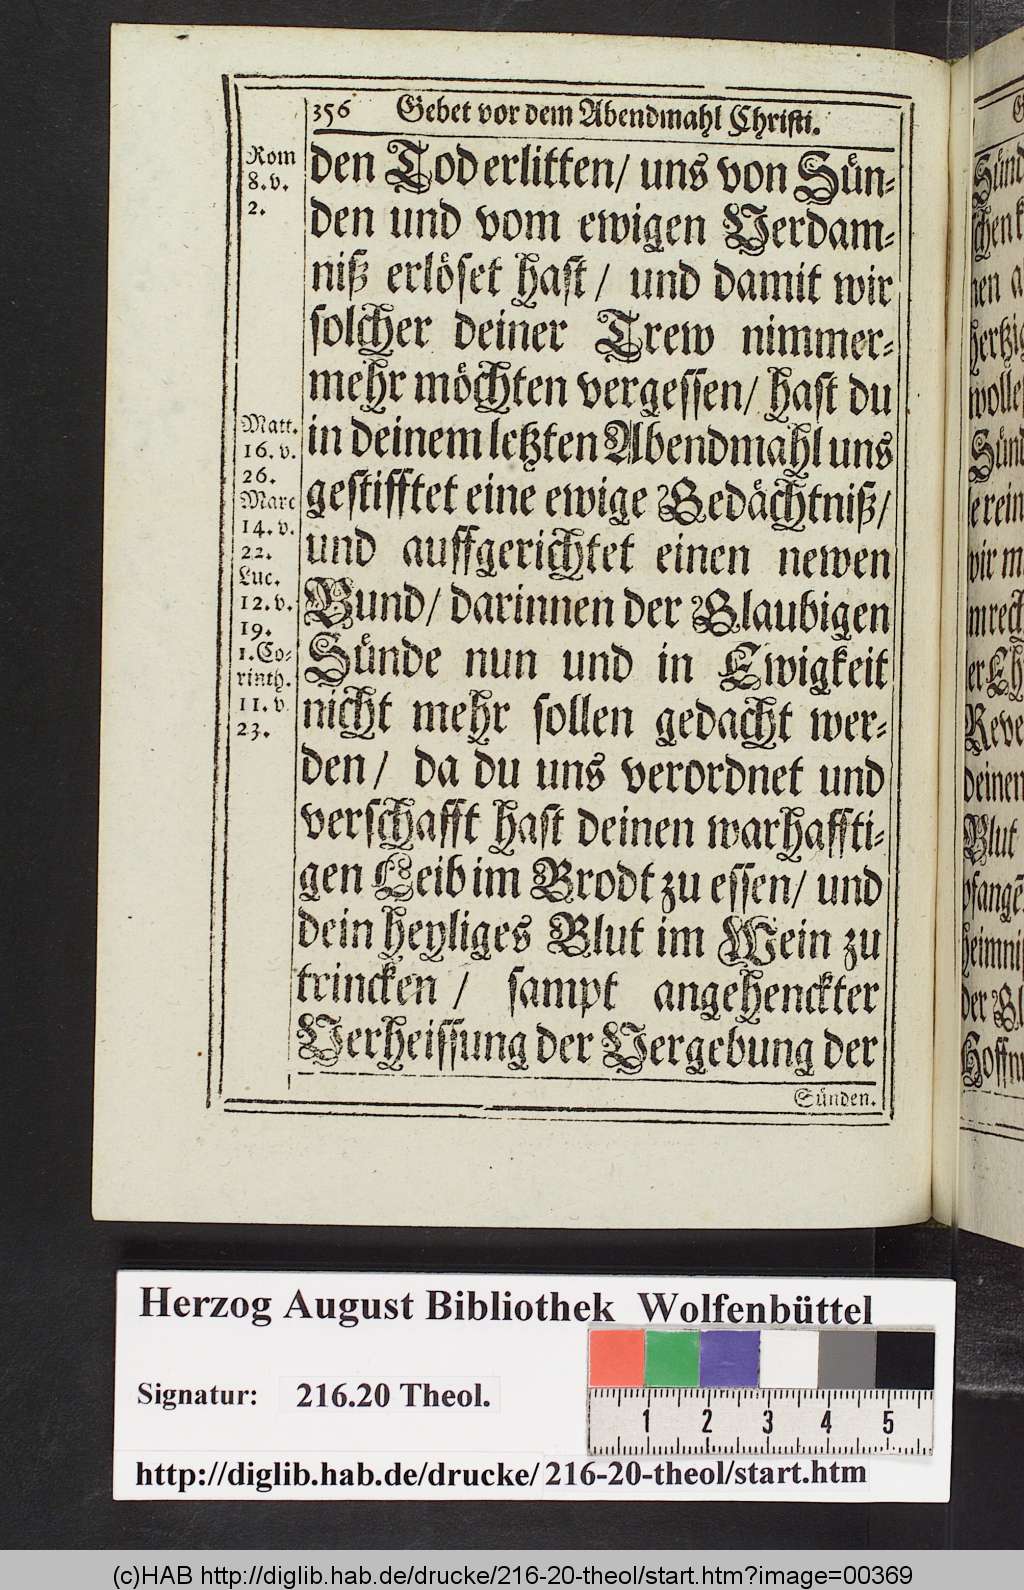 356 Gebet vor dem Abendmahl Christi.
Rom
8. v.
2.
den Tod erlitten/ uns von Sün-
den und vom ewigen Verdam-
niß erlöset hast/ und damit wir
solcher deiner Trew nimmer-
mehr möchten vergessen/ hast du
Matt.
16. v.
26.
Marc
14. v.
22.
Luc.
12. v.
19.
1. Co-
rinth.
11. v
23.
in deinem letzten Abendmahl uns
gestifftet eine ewige Gedächtniß/
und auffgerichtet einen newen
Bund/ darinnen der Glaubigen
Sünde nun und in Ewigkeit
nicht mehr sollen gedacht wer-
den/ da du uns verordnet und
verschafft hast deinen warhaffti-
gen Leib im Brodt zu essen/ und
dein heyliges Blut im Wein zu
trincken/ sampt angehenckter
Verheissung der Vergebung der
Sünden.
Herzog August Bibliothek Wolfenbüttel
Signatur: 216.20 Theol.
1 2 3 4 5
http://diglib.hab.de/drucke/ 216-20-theol/start.htm
(c)HAB http://diglib.hab.de/drucke/216-20-theol/start.htm?image=00369